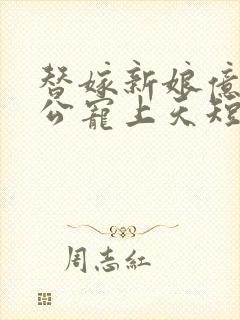 替嫁新娘億
公寵上天短
周志紅